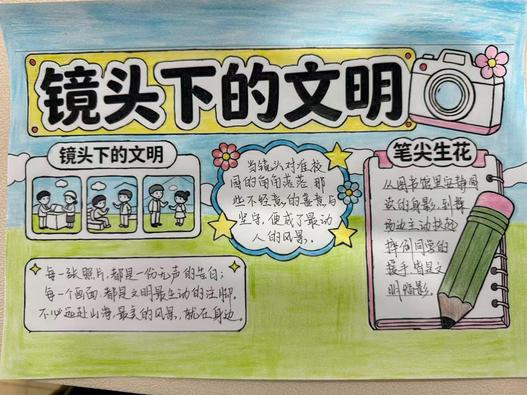 镜头下的文明
镜头下的文明
当镜头对准校
园的角角落落,那
些不经意的善意与
坚守,便成了最动
人的风景。
笔尖生花
从图书馆里安静阅
读的身影,到操
场边主动扶起
摔倒同学的
援手,皆是文
明缩影。
每一张照片,都是一份无声的告白;
每一个画面,都是文明最生动的注脚。
不必远赴山海,最美的风景,就在身边。